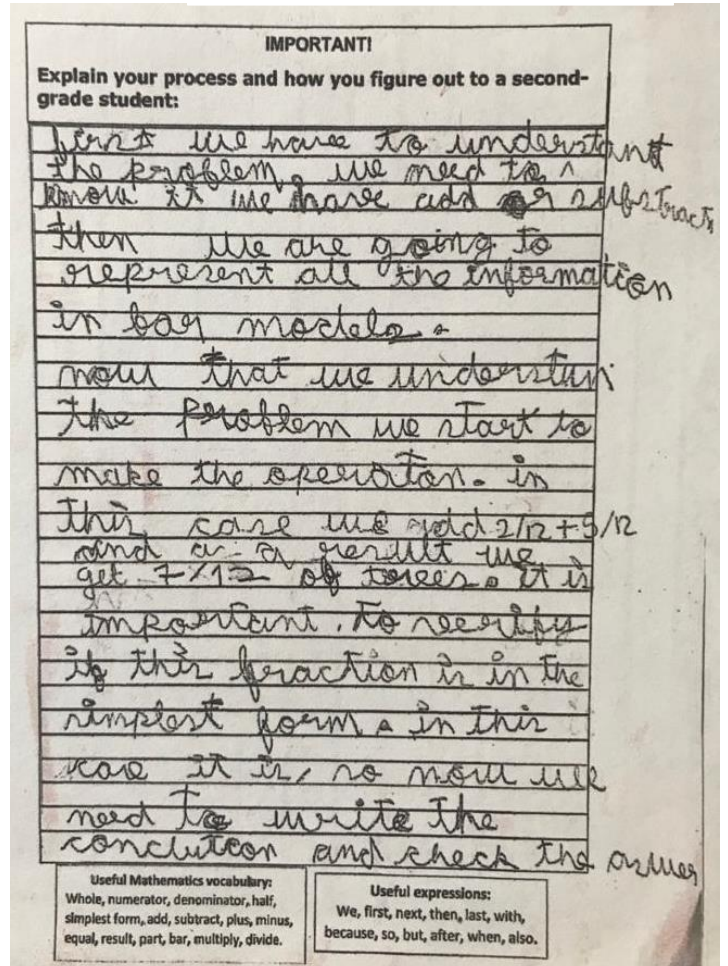 IMPORTANT!
Explain your process and how you figure out to a second-
grade student:
first we have to understant
the problem, we need to
know it we have add or substract
then we are going to
represent all the information
in bar models.
now that we understun
the problem we start to
make the operaton. in
this case we add 2/12 + 5/12
and as a result we
get 7/12 of torees. it is
important. to reerify
if this fraction is in the
simplest form. in this
case it is, so now we
need to write the
conclution and check the asnwer
Useful Mathematics vocabulary:
Whole, numerator, denominator, half,
simplest form, add, subtract, plus, minus,
equal, result, part, bar, multiply, divide.
Useful expressions:
We, first, next, then, last, with,
because, so, but, after, when, also.